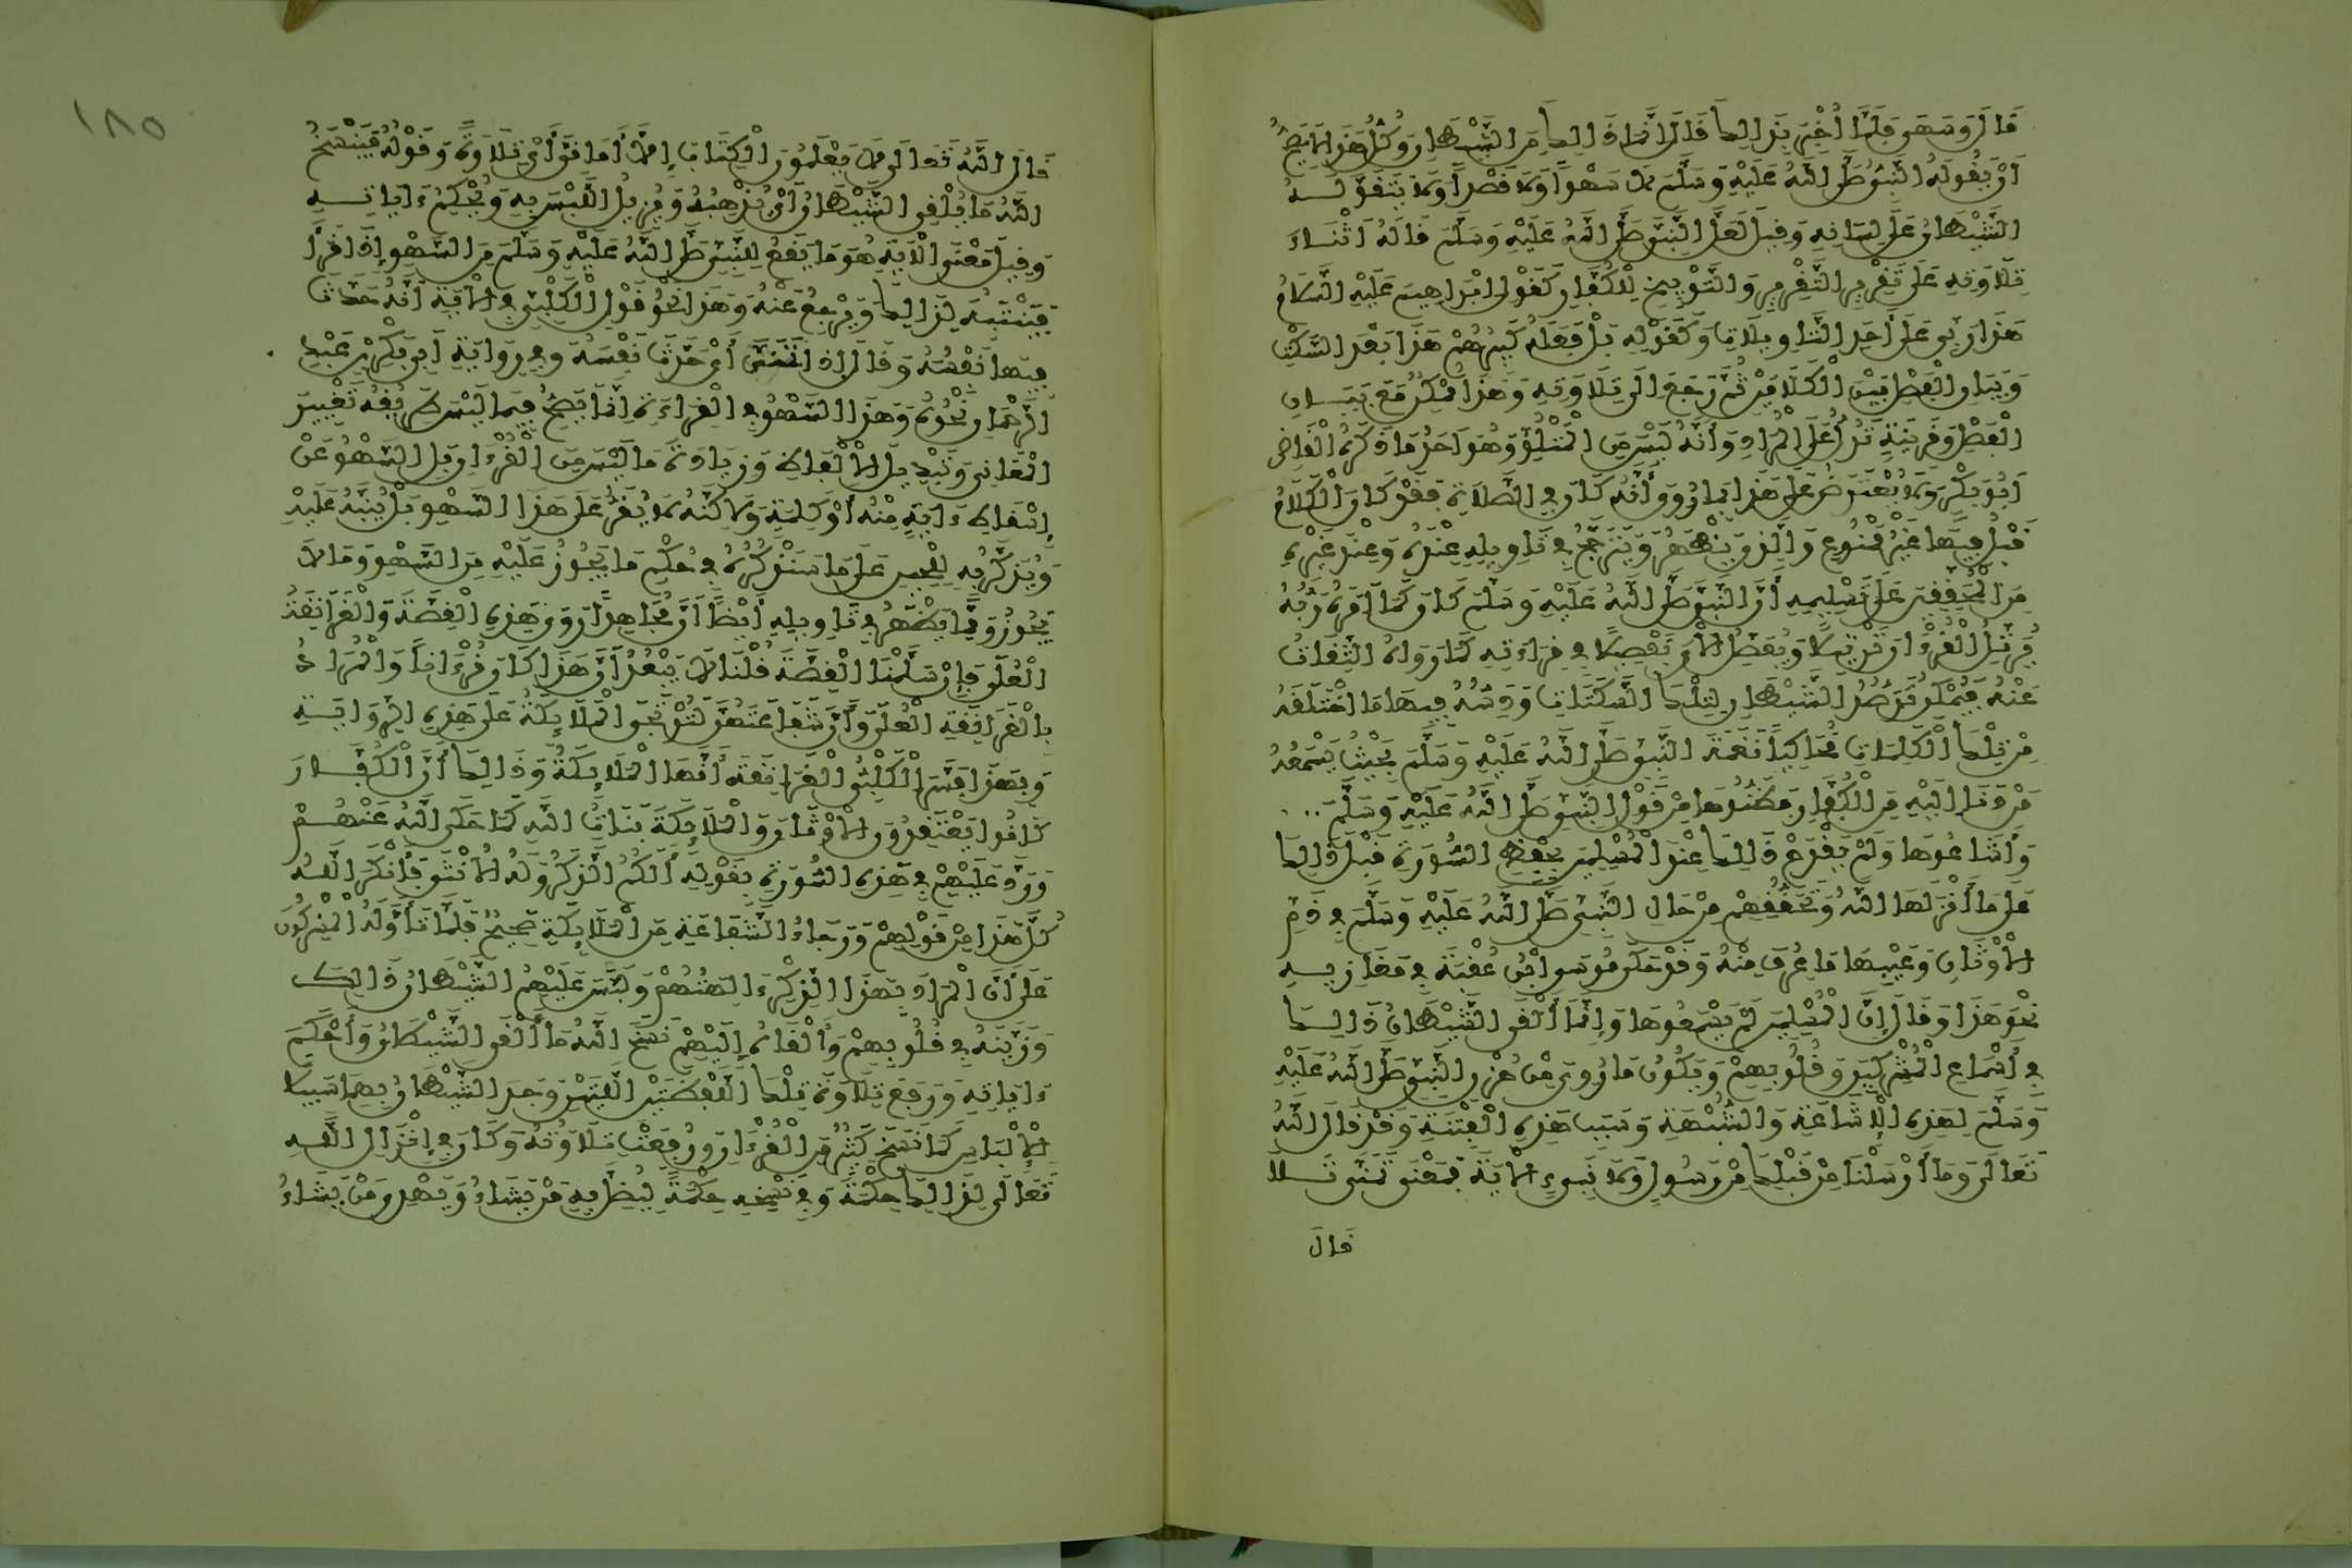 قَالَ وَسَهَو فَلَمَّا أُخْبِرَ بِذَالِكَ قَالَ إِنَّمَا ذَالِكَ مِنَ الشَّيْطَانِ وَكُلُّ هَذَا لَا يَصِحُّ
أَنْ يَقُولَهُ النَّبِيُّ صَلَّى اللَّهُ عَلَيْهِ وَسَلَّمَ لَا سَهْواً وَلَا قَصْداً وَلَا يَتَقَوَّلَــهُ
الشَّيْطَانُ عَلَى لِسَانِهِ وَقِيلَ لَعَلَّ النَّبِيَّ صَلَّى اللَّهُ عَلَيْهِ وَسَلَّمَ قَالَهُ أَثْنَاءَ
تِلَاوَتِهِ عَلَى تَقْدِيرِ التَّقْرِيرِ وَالتَّوْبِيخِ لِلْكُفَّارِ كَقَوْلِ إِبْرَاهِيمَ عَلَيْهِ السَّلَامُ
هَذَا رَبِّي عَلَى أَحَدِ التَّاوِيلَاتِ وَكَقَوْلِهِ بَلْ فَعَلَهُ كَبِيرُهُمْ هَذَا بَعْدَ السَّكْتِ
وَبَيَانِ الْفَصْلِ بَيْنَ الْكَلَامَيْنِ ثُمَّ رَجَعَ إِلَى تِلَاوَتِهِ وَهَذَا مُمْكِنٌ مَعَ بَيَــانِ
الْفَصْلِ وَقَرِينَةٍ تَدُلُّ عَلَى الْمُرَادِ وَأَنَّهُ لَيْسَ مِنَ الْمَتْلُوِّ وَهُوَ أَحَدُ مَا ذَكَرَهُ الْقَاضِي
أَبُو بَكْرٍ وَلَا يُعْتَرَضُ عَلَى هَذَا بِمَا رُوِيَ أَنَّهُ كَانَ فِي الصَّلَاةِ فَقَدْ كَانَ الْكَلَامُ
قَبْلُ فِيهَا غَيْرَ مَمْنُوعٍ وَالَّذِي يَظْهَرُ وَيَتَرَجَّحُ فِي تَاوِيلِهِ عِنْدَهُ وَعِنْدَ غَيْرِهِ
مِنَ الْمُحَقِّقِينَ عَلَى تَسْلِيمِهِ أَنَّ النَّبِيَّ صَلَّى اللَّهُ عَلَيْهِ وَسَلَّمَ كَانَ كَمَا أَمَرَهُ رَبُّهُ
يُرَتِّلُ الْقُرْءَانَ تَرْتِيلًا وَيُفَصِّلُ الْأَيَ تَفْصِيلًا فِي قِرَاءَتِهِ كَمَا رَوَاهُ الثِّقَاتُ
عَنْهُ فَيُمْكِنُ تَرَصُّدُ الشَّيْطَانِ لِتِلْكَ السَّكَتَاتِ وَدَسُّهُ فِيهَا مَا اخْتَلَقَهُ
مِنْ تِلْكَ الْكَلِمَاتِ مُحَاكِياً نَغْمَةَ النَّبِيِّ صَلَّى اللَّهُ عَلَيْهِ وَسَلَّمَ بِحَيْثُ يَسْمَعُهُ
مَنْ دَنَا إِلَيْهِ مِنَ الْكُفَّارِ فَظَنُّوهَا مِنْ قَوْلِ النَّبِيِّ صَلَّى اللَّهُ عَلَيْهِ وَسَلَّمَ ..
وَأَشَاعُوهَا وَلَمْ يَقْدَحْ ذَالِكَ عِنْدَ الْمُسْلِمِينَ بِحِفْظِ السُّورَةِ قَبْلَ ذَالِكَ
عَلَى مَا أَنْزَلَهَا اللَّهُ وَتَحَقُّقِهِمْ مِنْ حَالِ النَّبِيِّ صَلَّى اللَّهُ عَلَيْهِ وَسَلَّمَ فِي ذَمِّ
الْأَوْثَانِ وَعَيْبِهَا مَا عُرِفَ مِنْهُ وَقَدْ حَكَى مُوسَى ابْنُ عُقْبَةَ فِي مَغَازِيــهِ
نَحْوَ هَذَا وَقَالَ إِنَّ الْمُسْلِمِينَ لَمْ يَسْمَعُوهَا وَإِنَّمَا أَلْقَى الشَّيْطَانُ ذَالِــكَ
فِي أَسْمَاعِ الْمُشْرِكِينَ وَقُلُوبِهِمْ وَيَكُونُ مَا رُوِيَ مِنْ حُزْنِ النَّبِيِّ صَلَّى اللَّهُ عَلَيْهِ
وَسَلَّمَ لِهَذِهِ الْإِشَاعَةِ وَالشُّبْهَةِ وَسَبَبِ هَذِهِ الْفِتْنَةِ وَقَدْ قَالَ اللَّهُ
تَعَالَى وَمَا أَرْسَلْنَا مِنْ قَبْلِكَ مِنْ رَسُولٍ وَلَا نَبِيءٍ الْأَيَةَ فَمَعْنَى تَمَنَّى تَــلَا
قَالَ
١٨٥
قَالَ اللَّهُ تَعَالَى لَا يَعْلَمُونَ الْكِتَابَ إِلَّا أَمَانِيَّ أَيْ تِلَاوَةً وَقَوْلُهُ فَيَنْسَخُ
اللَّهُ مَا يُلْقِي الشَّيْطَانُ أَيْ يُذْهِبُهُ وَيُزِيلُ اللَّبْسَ بِهِ وَيُحْكِمُ ءَايَاتِــهِ
وَقِيلَ مَعْنَى الْأَيَةِ هُوَ مَا يَقَعُ لِلنَّبِيِّ صَلَّى اللَّهُ عَلَيْهِ وَسَلَّمَ مِنَ السَّهْوِ إِذَا قَرَأَ
فَيَنْتَبِهُ لِذَالِكَ وَيَرْجِعُ عَنْهُ وَهَذَا نَحْوُ قَوْلِ الْكَلْبِيِّ فِي الْأَيَةِ أَنَّهُ حَدَّثَ
فِيهَا نَفْسَهُ وَقَالَ إِذَا تَمَنَّى أَيْ حَدَّثَ نَفْسَهُ وَفِي رِوَايَةِ أَبِي بَكْرِ بْنِ عَبْدِ
الرَّحْمَانِ نَحْوُهُ وَهَذَا السَّهْوُ فِي الْقِرَاءَةِ إِنَّمَا يَصِحُّ فِيمَا لَيْسَ طَرِيقُهُ تَغْيِيرَ
الْمَعَانِي وَتَبْدِيلَ الْأَلْفَاظِ وَزِيَادَةَ مَا لَيْسَ مِنَ الْقُرْءَانِ بَلِ السَّهْوُ عَنْ
إِسْقَاطِ ءَايَةٍ مِنْهُ أَوْ كَلِمَةٍ وَلَاكِنَّهُ لَا يُقَرُّ عَلَى هَذَا السَّهْوِ بَلْ يُنَبَّهُ عَلَيْهِ
وَيُذَكَّرُ بِهِ لِلْحِينِ عَلَى مَا سَنَذْكُرُهُ فِي حُكْمِ مَا يَجُوزُ عَلَيْهِ مِنَ السَّهْوِ وَمَا لَا
يَجُوزُ وَمِمَّا يَظْهَرُ فِي تَاوِيلِهِ أَيْضاً أَنَّ مُجَاهِداً رَوَى هَذِهِ الْقِصَّةَ وَالْغَرَانِقَةُ
الْعُلَى فَإِنْ سَلَّمْنَا الْقِصَّةَ قُلْنَا لَا يَبْعُدُ أَنَّ هَذَا كَانَ قُرْءَاناً وَالْمُرَادُ
بِالْغَرَانِقَةِ الْعُلَى وَأَنَّ شَفَاعَتَهُنَّ لَتُرْتَجَى الْمَلَائِكَةُ عَلَى هَذِهِ الرِّوَايَــةِ
وَبِهَذَا فَسَّرَ الْكَلْبِيُّ الْغَرَانِقَةَ أَنَّهَا الْمَلَائِكَةُ وَذَالِكَ أَنَّ الْكُفَّــارَ
كَانُوا يَعْتَقِدُونَ الْأَوْثَانَ وَالْمَلَائِكَةَ بَنَاتِ اللَّهِ كَمَا حَكَى اللَّهُ عَنْهُــمْ
وَرَدَّ عَلَيْهِمْ فِي هَذِهِ السُّورَةِ بِقَوْلِهِ أَلَكُمُ الذَّكَرُ وَلَهُ الْأُنْثَى فَأَنْكَرَ اللَّــهُ
كُلَّ هَذَا مِنْ قَوْلِهِمْ وَرَجَاءُ الشَّفَاعَةِ مِنَ الْمَلَائِكَةِ صَحِيحٌ فَلَمَّا تَأَوَّلَهُ الْمُشْرِكُونَ
عَلَى أَنَّ الْمُرَادَ بِهَذَا الذِّكْرِ ءَالِهَتُهُمْ وَلَبَّسَ عَلَيْهِمُ الشَّيْطَانُ ذَالِكَ
وَزَيَّنَهُ فِي قُلُوبِهِمْ وَأَلْقَاهُ إِلَيْهِمْ نَسَخَ اللَّهُ مَا أَلْقَى الشَّيْطَانُ وَأَحْكَمَ
ءَايَاتِهِ وَرَفَعَ تِلَاوَةَ تِلْكَ اللَّفْظَتَيْنِ اللَّتَيْنِ وَجَدَ الشَّيْطَانُ بِهِمَا سَبِيلًا
لِلْإِلْبَاسِ كَمَا نُسِخَ كَثِيرٌ مِنَ الْقُرْءَانِ وَرُفِعَتْ تِلَاوَتُهُ وَكَانَ فِي إِنْزَالِ اللَّــهِ
تَعَالَى لِذَالِكَ حِكْمَةٌ وَفِي نَسْخِهِ حِكْمَةٌ لِيُضِلَّ بِهِ مَنْ يَشَاءُ وَيَهْدِي مَنْ يَشَاءُ